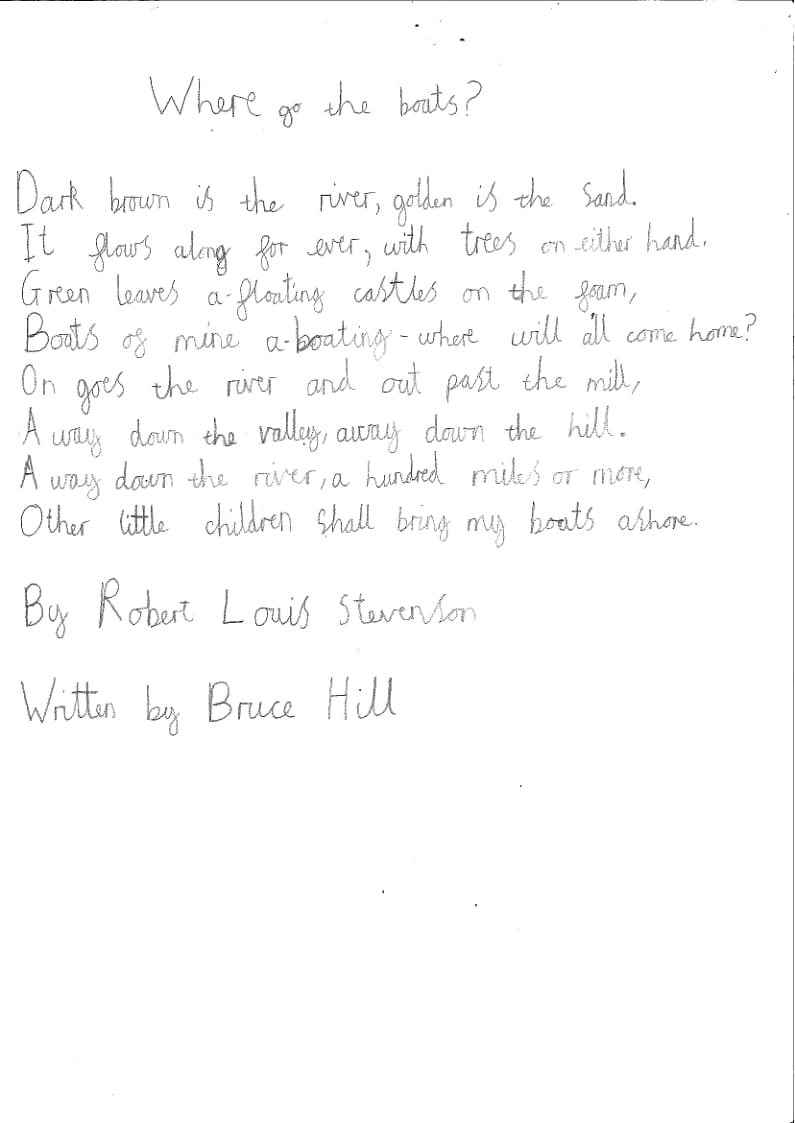 Where go the boats?
Dark brown is the river, golden is the sand.
It flows along for ever, with trees on either hand.
Green leaves a-floating castles on the foam,
Boats of mine a-boating - where will all come home?
On goes the river and out past the mill,
A way down the valley, away down the hill.
A way down the river, a hundred miles or more,
Other little children shall bring my boats ashore.
By Robert Louis Stevenson
Written by Bruce Hill